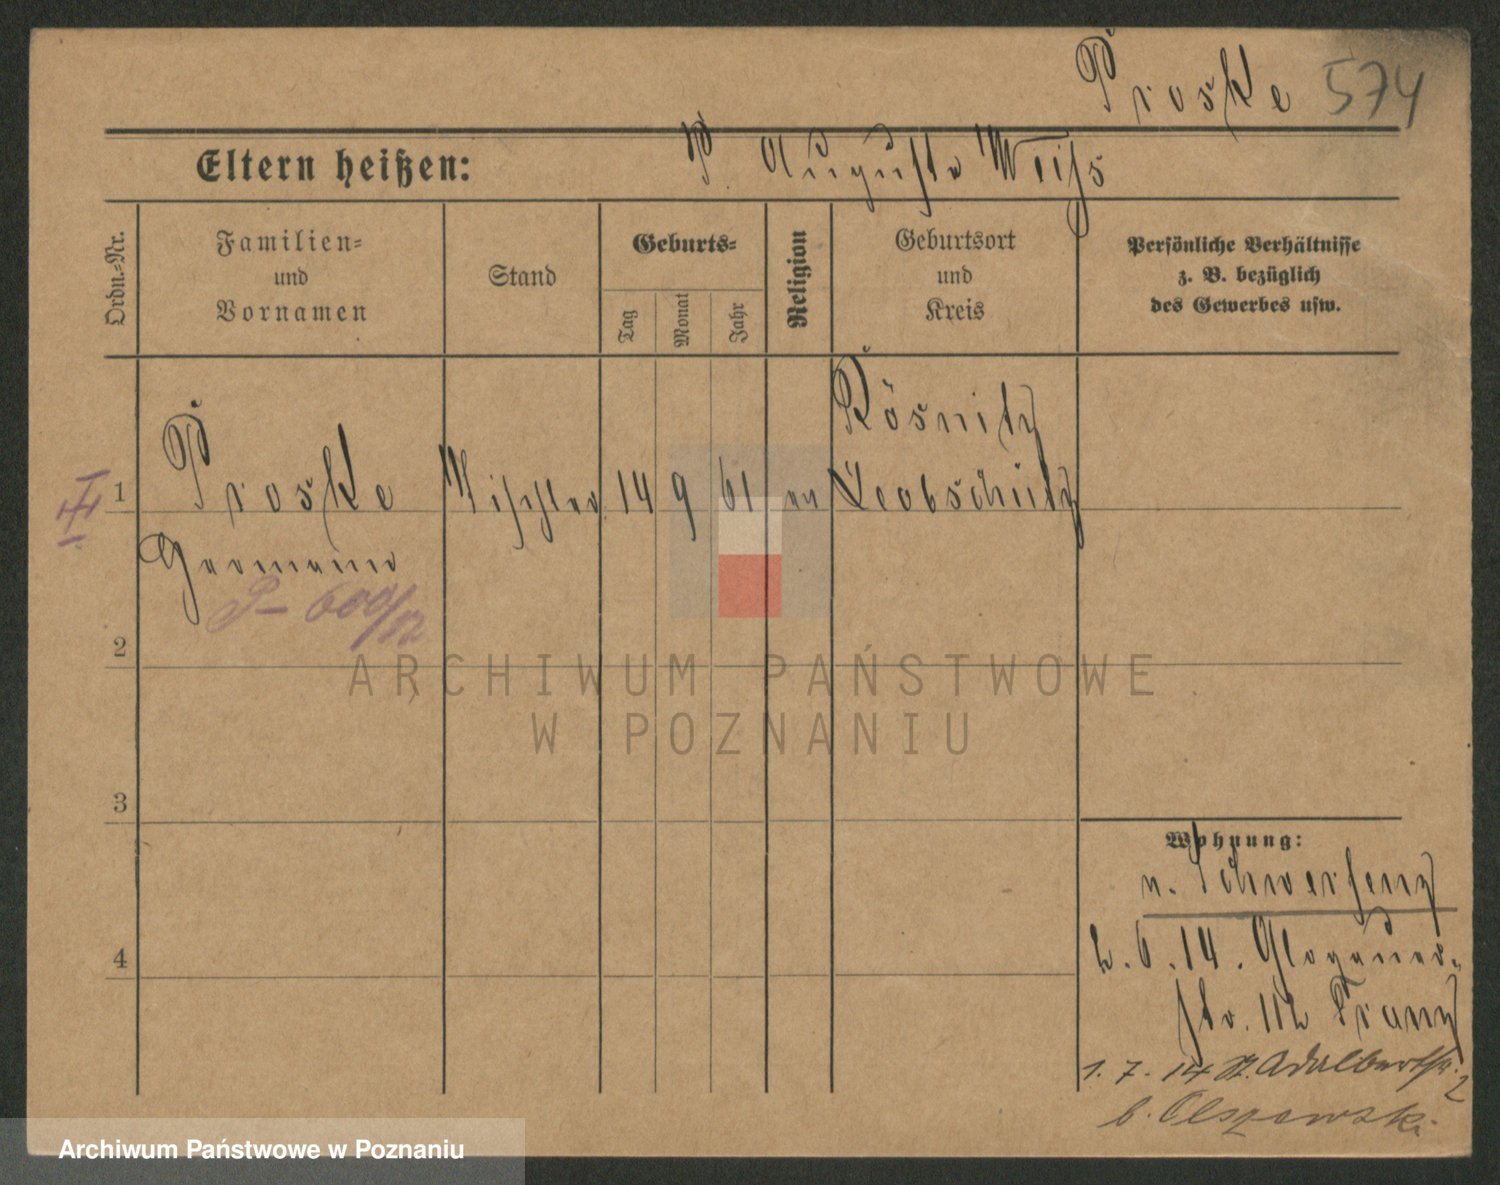 Proske 574
Eltern heißen: P. Auguste Weiß
Ordn.-Nr.
Familien-
und
Vornamen
Stand
Geburts-
Tag
Monat
Jahr
Religion
Geburtsort
und
Kreis
Persönliche Verhältnisse
z. B. bezüglich
des Gewerbes usw.
Rösnitz
1 Proske Tischler 14 9 61 ev Leobschütz
Hermann
P- 600/12
2
ARCHIWUM PAŃSTWOWE
W POZNANIU
3
Wohnung:
n. Schwersenz
2.6.14. Glogauer-
str. 112 Franz
1.7.14 St. Adalbertstr. 2
b. Olszewski
4
Archiwum Państwowe w Poznaniu